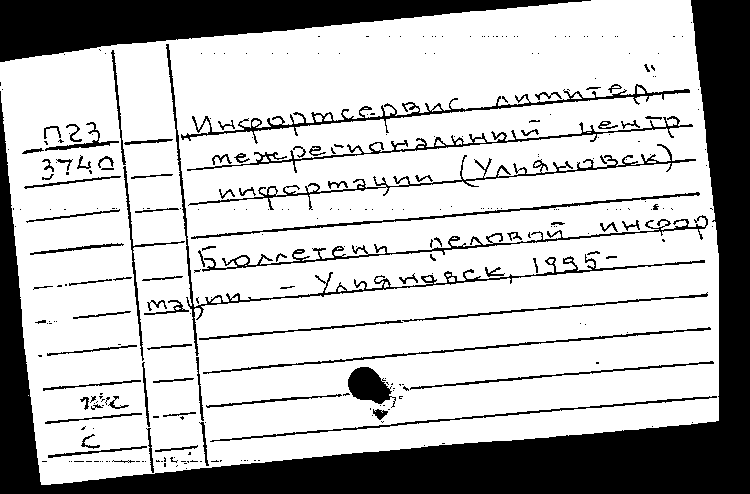 П23
3740
„Информсервис лититед",
межрегиональный центр
информации (Ульяновск)
Бюллетени деловой инфор
мации. - Ульяновск, 1995-
с